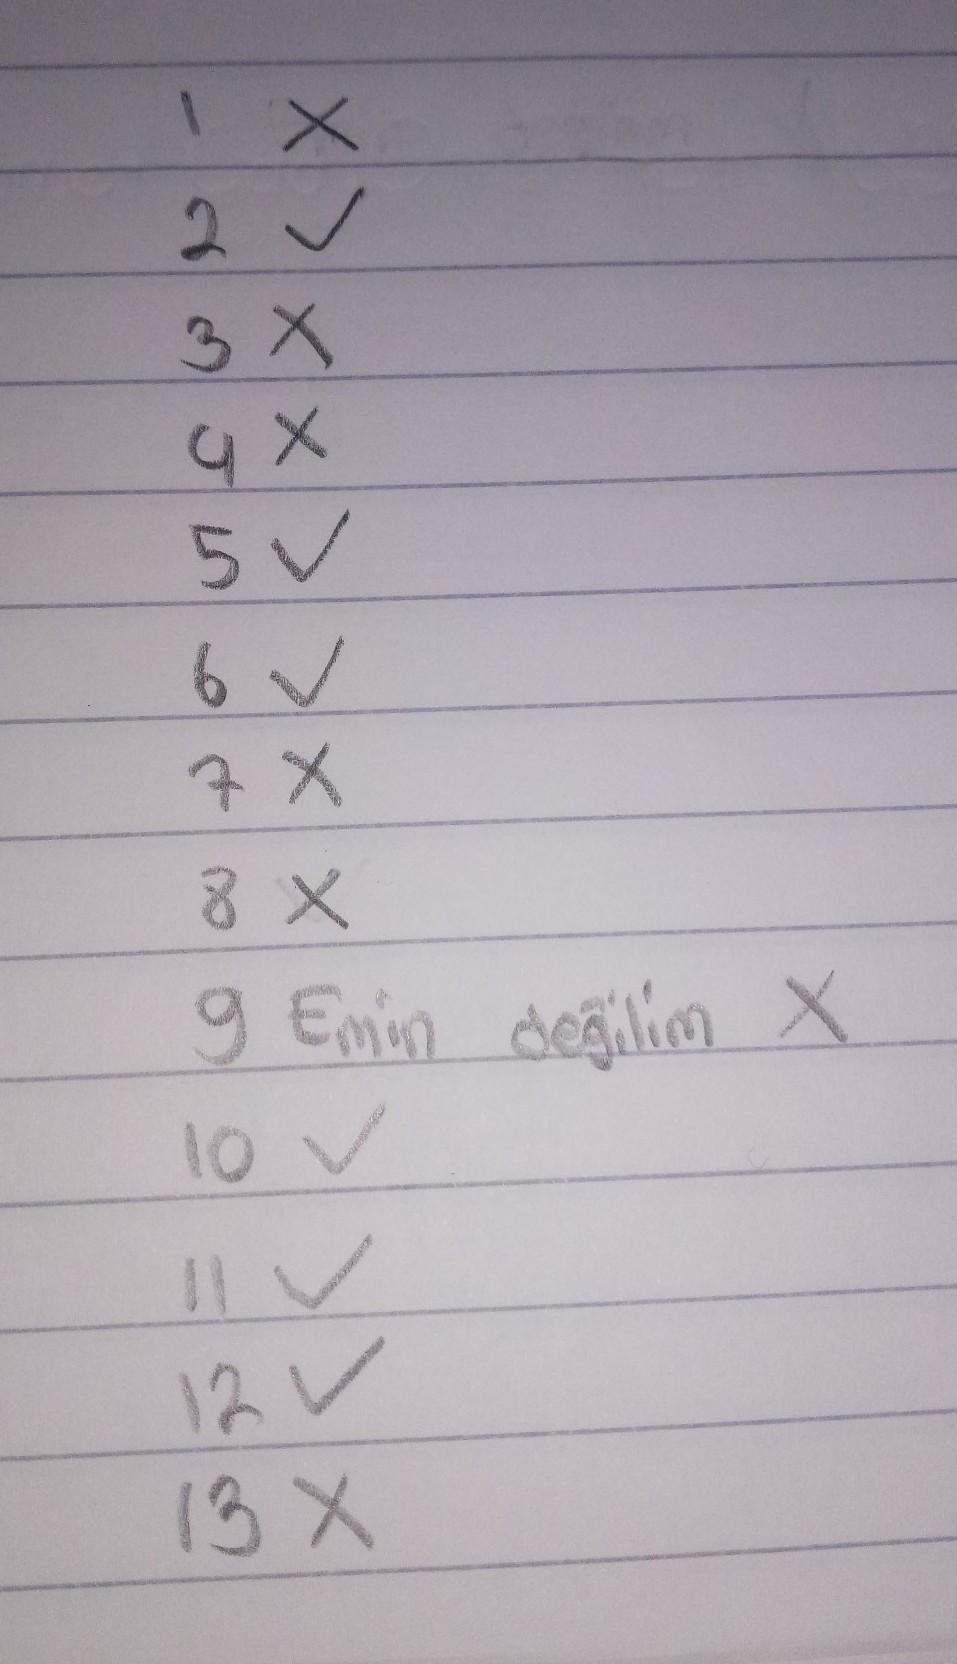 1 X
2 ✓
3 X
4 X
5 ✓
6 ✓
7 X
8 X
9 Emin değilim X
10 ✓
11 ✓
12 ✓
13 X